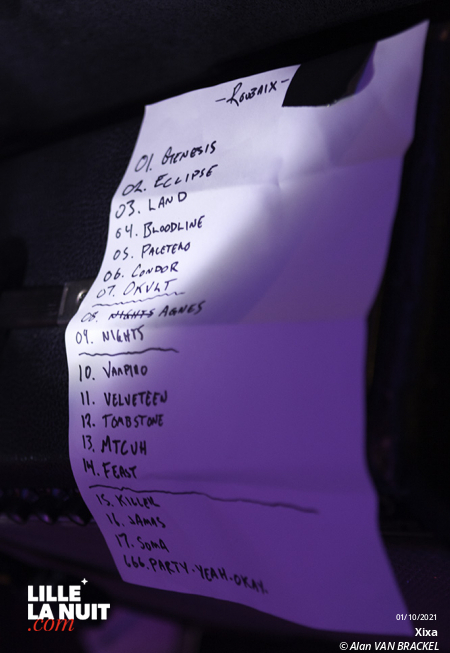 -ROUBAIX-
01. GENESIS
02. ECLIPSE
03. LAND
04. BLOODLINE
05. PALETERO
06. CONDOR
07. OKVLT
08. NIGHTS AGNES
09. NIGHTS
10. VAMPIRO
11. VELVETEEN
12. TOMBSTONE
13. MTCUH
14. FEAST
15. KILLER
16. JAMAS
17. SOMA
666. PARTY. YEAH. OKAY.
LILLE
LA NUIT
.com
01/10/2021
Xixa
© Alan VAN BRACKEL